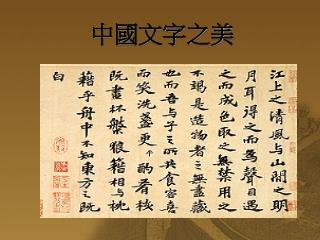 中國文字之美
江上之清風與山間之明
月耳得之而為聲目遇
之而成色取之無禁用之
不竭是造物者之無盡藏
也而吾與子之所共食客喜
而笑洗盞更酌肴核
既盡杯槃狼籍相與枕
藉乎舟中不知東方之既
白